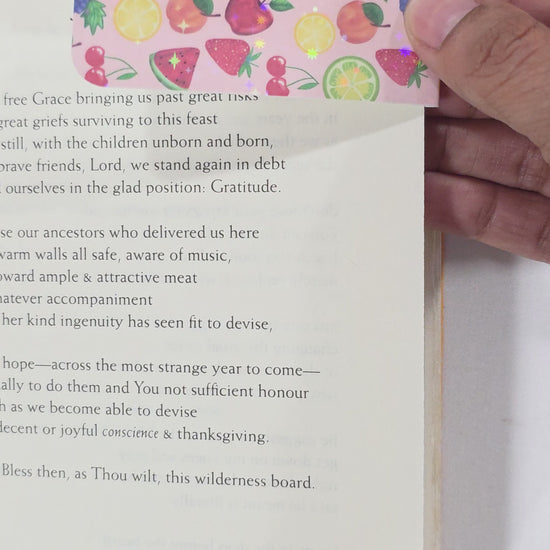 free Grace bringing us past great risks
great griefs surviving to this feast
still, with the children unborn and born,
brave friends, Lord, we stand again in debt
ourselves in the glad position: Gratitude.
se our ancestors who delivered us here
warm walls all safe, aware of music,
oward ample & attractive meat
hatever accompaniment
her kind ingenuity has seen fit to devise,
hope—across the most strange year to come—
ally to do them and You not sufficient honour
h as we become able to devise
decent or joyful conscience & thanksgiving.
Bless then, as Thou wilt, this wilderness board.